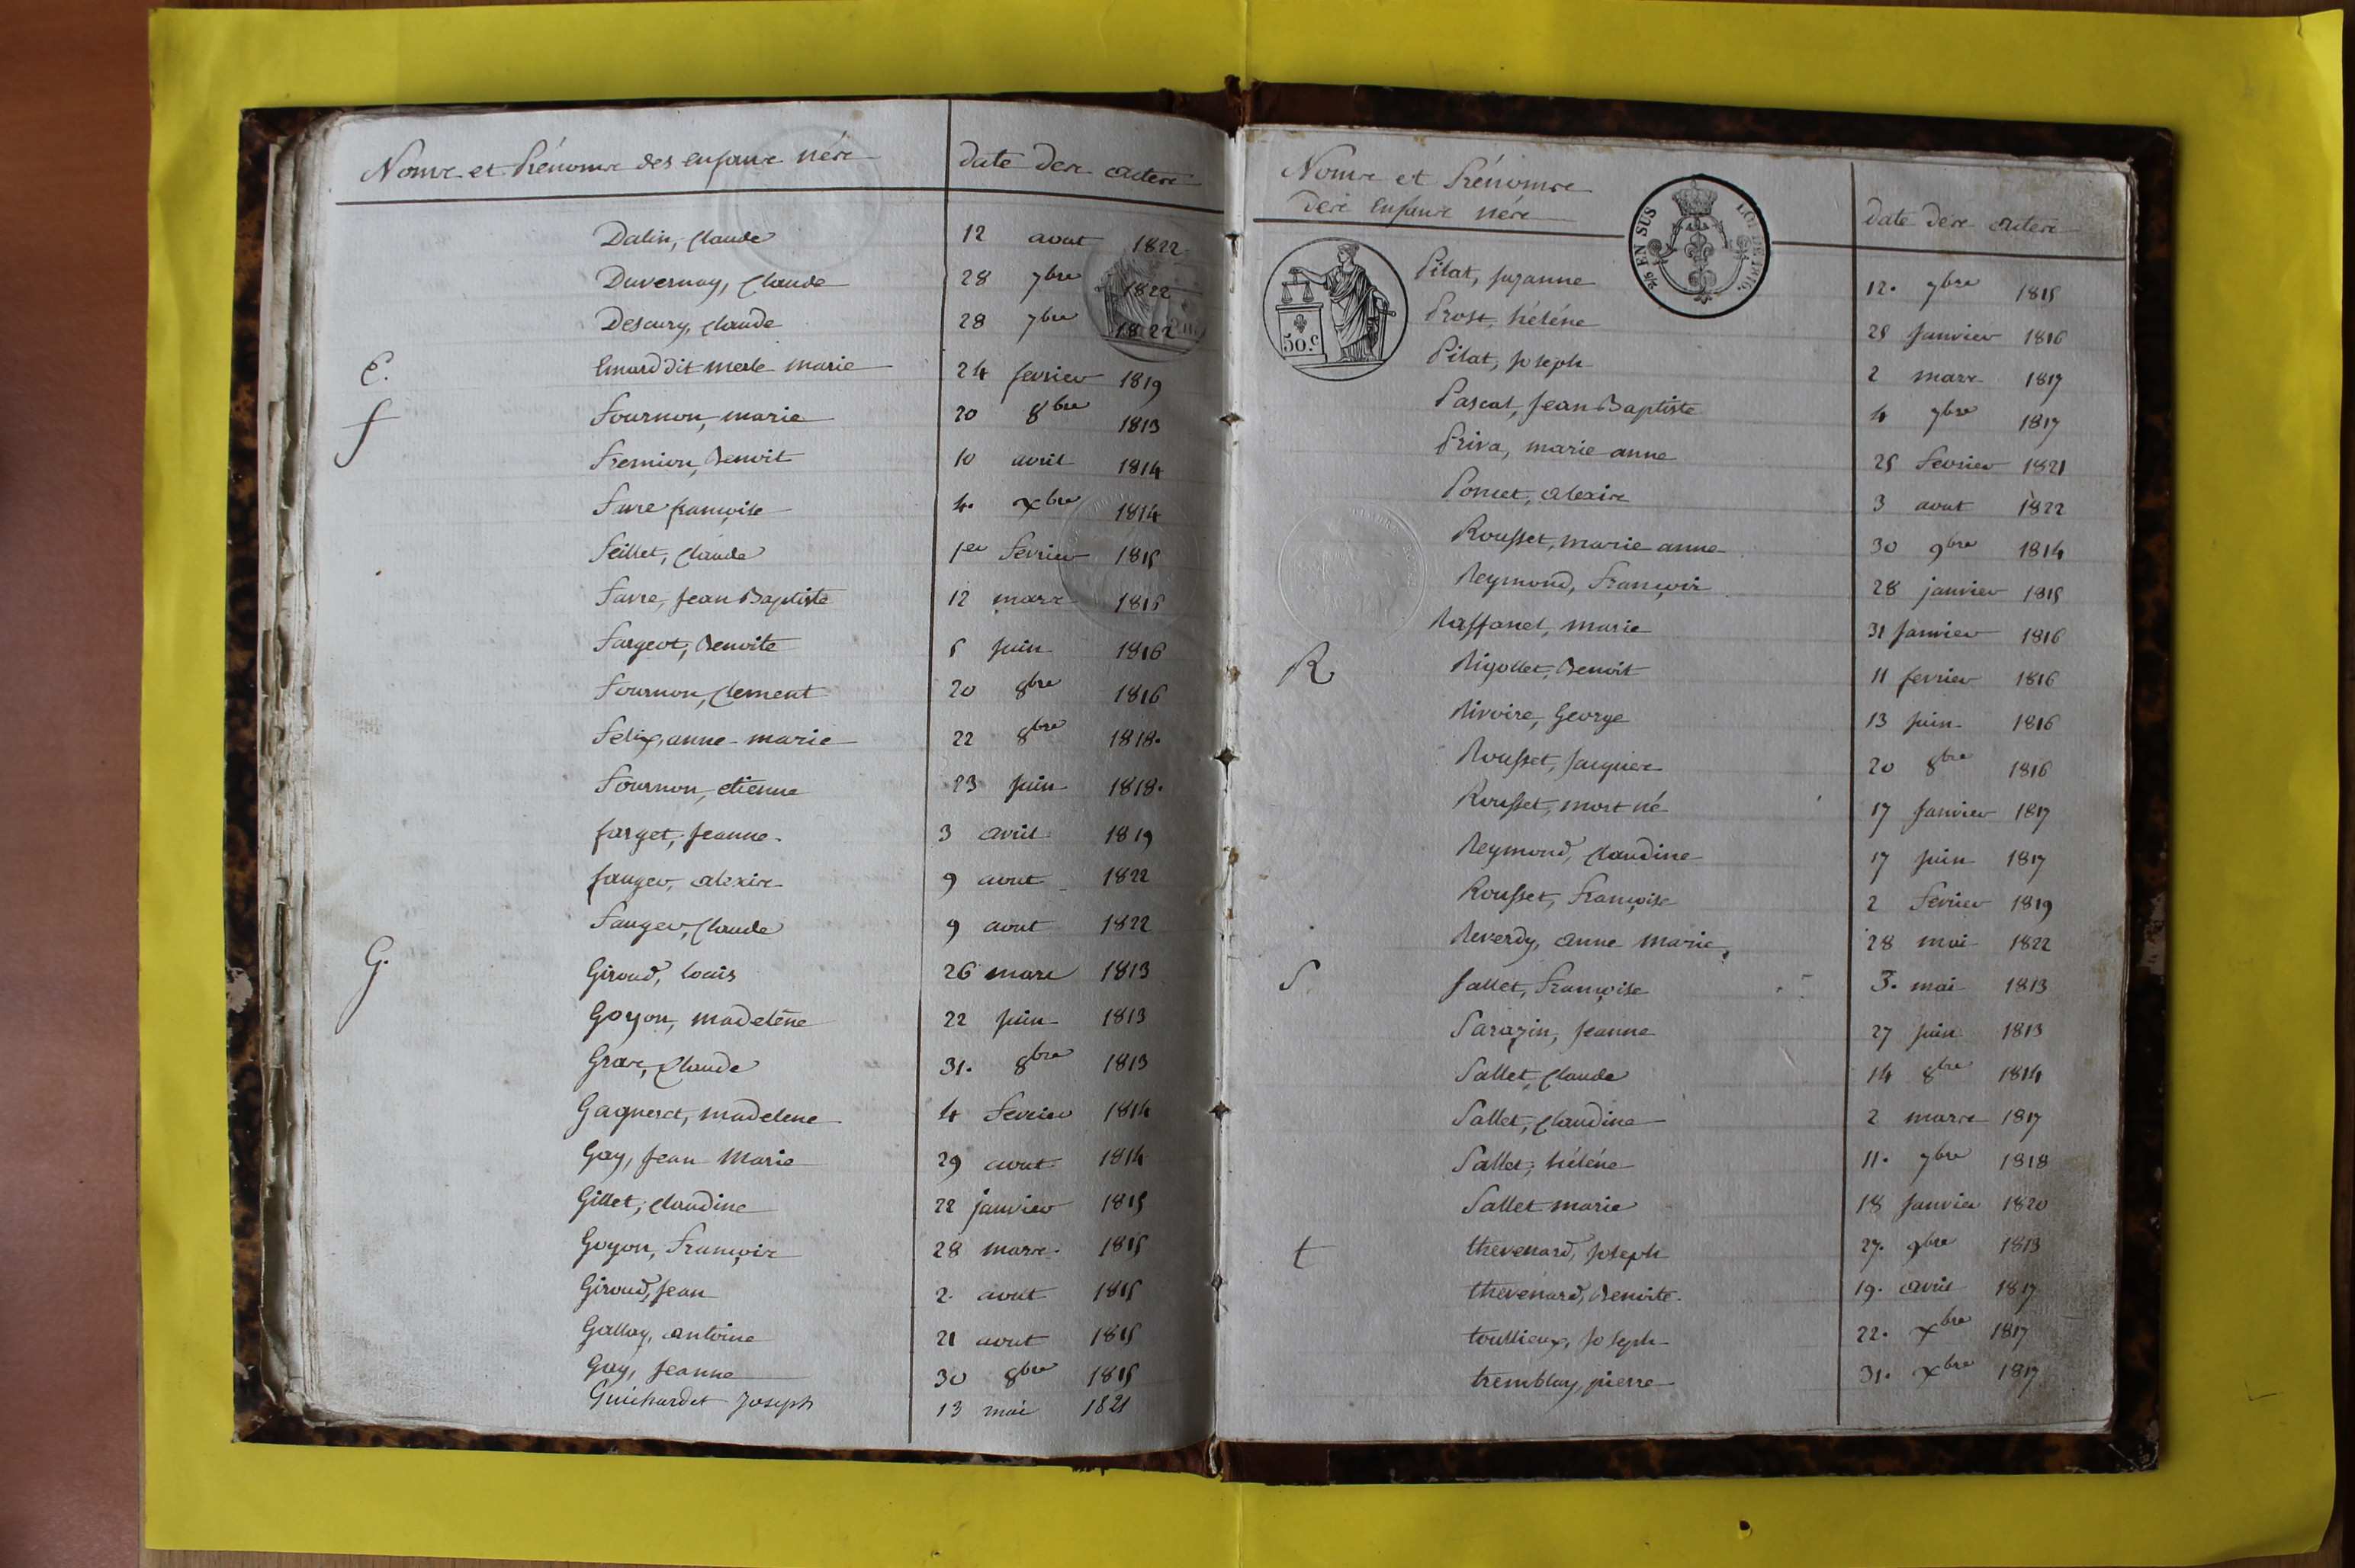 Noms et Prénoms des enfans nés date des actes
Dalin, Claude 12 aout 1822
Duvernay, Claude 28 7bre 1822
Descury, Claude 28 7bre 1822
E. Emard dit merle marie 24 fevrier 1819
f Fournon, marie 20 8bre 1813
Fremion, Benoit 10 avril 1814
Favre françoise 4. xbre 1814
Feillet, Claude 1er fevrier 1815
Favre, Jean Baptiste 12 mars 1816
Fargeot, Benoite 5 Juin 1816
Fournon, Clement 20 8bre 1816
Felix, anne marie 22 8bre 1818.
Fournon, etienne 23 Juin 1818.
farget, Jeanne. 3 avril 1819
fauger, alexis 9 aout 1822
Fauger, Claude 9 aout 1822
G. Giroud, louis 26 mars 1813
Goyon, madelène 22 Juin 1813
Gras, Claude 31. 8bre 1813
Gagneret, madelene 4 fevrier 1814
Gay, Jean Marie 29 aout 1814
Gillet, Claudine 22 janvier 1815
Goyon, François 28 mars. 1815
Giroud, Jean 2. aout 1815
Gallay, antoine 21 aout 1815
Gay, Jeanne 30 8bre 1815
Guichardet Joseph 13 mai 1821
Noms et Prénoms
des enfans nés date des actes
5/10 EN SUS LOI DE 1816.
50.c
Pilat, Suzanne 12. 7bre 1815
Prost, hélène 25 Janvier 1816
Pilat, Joseph 2 mars 1817
Pascal, Jean Baptiste 4 7bre 1817
Priva, marie anne 25 fevrier 1821
Poncet, alexis 3 aout 1822
Rousset, marie anne 30 9bre 1814
Reymond, François 28 janvier 1815
Raffanel, marie 31 Janvier 1816
R Rigollet, Benoit 11 fevrier 1816
Rivoire, George 13 Juin 1816
Rousset, Jacques 20 8bre 1816
Rousset, mort né 17 Janvier 1817
Reymond, Claudine 17 Juin 1817
Rousset, Françoise 2 fevrier 1819
Reverdy, anne marie, 28 mai 1822
S Sallet, Françoise 3. mai 1813
Sarazin, Jeanne 27 Juin 1813
Sallet, Claude 14 8bre 1814
Sallet, Claudine 2 mars 1817
Sallet, hélène 11. 7bre 1818
Sallet marie 18 Janvier 1820
t thevenard, Joseph 27. 9bre 1813
thevenard, Benoite. 19. avril 1817
toullieux, Joseph 22. xbre 1817
tremblay, pierre 31. xbre 1817